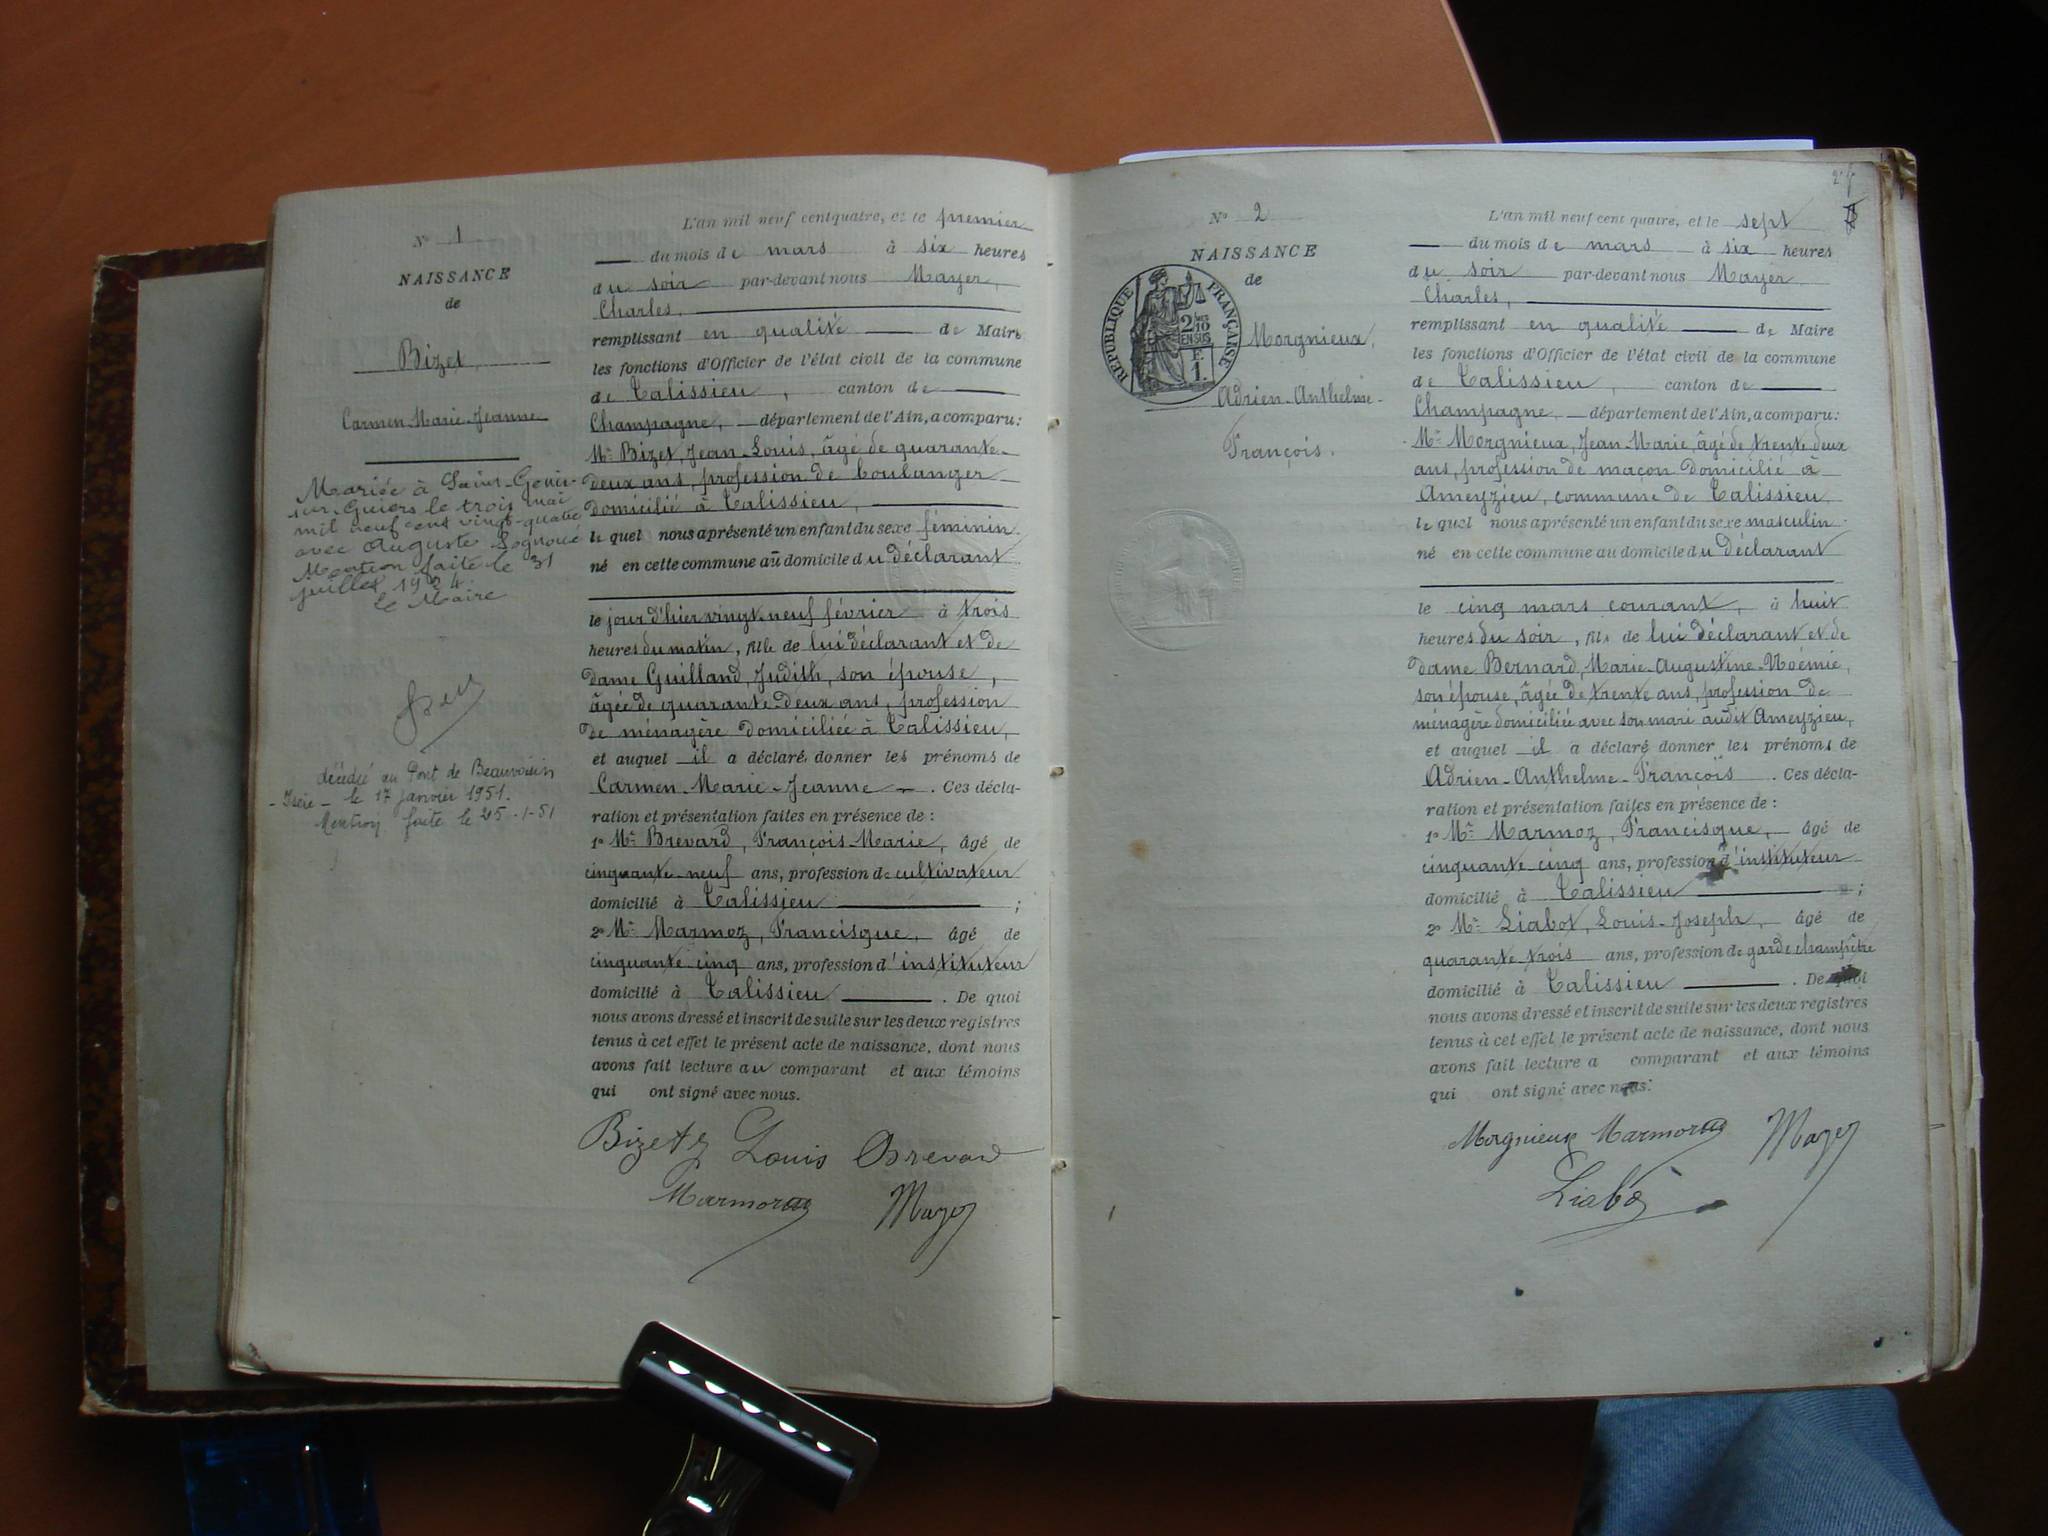 N° 1
NAISSANCE
de
Bizet,
Carmen-Marie-Jeanne
Mariée à Saint-Genix-
sur-Guiers le trois mai
mil neuf cent vingt-quatre
avec Auguste
Mention faite le 31
juillet 1924
Le Maire
décédée au Pont de Beauvoisin
- Isère - le 17 janvier 1951.
Mention faite le 25-1-51
L'an mil neuf cent quatre, et le premier
du mois de mars à six heures
du soir par-devant nous Mayer,
Charles,
remplissant en qualité de Maire
les fonctions d'Officier de l'état civil de la commune
de Talissieu, canton de
Champagne, département de l'Ain, a comparu:
Mr Bizet, Jean-Louis, âgé de quarante-
deux ans, profession de boulanger
domicilié à Talissieu,
le quel nous a présenté un enfant du sexe féminin
né en cette commune au domicile du déclarant
le jour d'hier vingt-neuf février à trois
heures du matin, fille de lui déclarant et de
dame Guilland, Judith, son épouse,
âgée de quarante-deux ans, profession
de ménagère domiciliée à Talissieu,
et auquel il a déclaré donner les prénoms de
Carmen-Marie-Jeanne. Ces décla-
ration et présentation faites en présence de :
1° Mr Brevard, François-Marie, âgé de
cinquante-neuf ans, profession de cultivateur
domicilié à Talissieu ;
2° Mr Marmoz, Francisque, âgé de
cinquante-cinq ans, profession d'instituteur
domicilié à Talissieu . De quoi
nous avons dressé et inscrit de suite sur les deux registres
tenus à cet effet le présent acte de naissance, dont nous
avons fait lecture au comparant et aux témoins
qui ont signé avec nous.
Bizet Louis Brevard
Marmoz Mayer
N° 2
NAISSANCE
de
REPUBLIQUE FRANÇAISE
2/10
EN SUS
F.
1.
Morgnieux,
Adrien-Anthelme-
François.
L'an mil neuf cent quatre, et le sept
du mois de mars à six heures
du soir par-devant nous Mayer,
Charles,
remplissant en qualité de Maire
les fonctions d'Officier de l'état civil de la commune
de Talissieu, canton de
Champagne, département de l'Ain, a comparu:
Mr Morgnieux, Jean-Marie, âgé de trente-deux
ans, profession de maçon domicilié à
Ameyzieu, commune de Talissieu,
le quel nous a présenté un enfant du sexe masculin
né en cette commune au domicile du déclarant
le cinq mars courant, à huit
heures du soir, fils de lui déclarant et de
dame Bernard, Marie-Augustine-Noémie,
son épouse, âgée de trente ans, profession de
ménagère domiciliée avec son mari audit Ameyzieu,
et auquel il a déclaré donner les prénoms de
Adrien-Anthelme-François . Ces décla-
ration et présentation faites en présence de :
1° Mr Marmoz, Francisque, âgé de
cinquante-cinq ans, profession d'instituteur
domicilié à Talissieu ;
2° Mr Liabot, Louis-Joseph, âgé de
quarante-trois ans, profession de garde champêtre
domicilié à Talissieu . De quoi
nous avons dressé et inscrit de suite sur les deux registres
tenus à cet effet le présent acte de naissance, dont nous
avons fait lecture a comparant et aux témoins
qui ont signé avec nous.
Morgnieux Marmoz Mayer